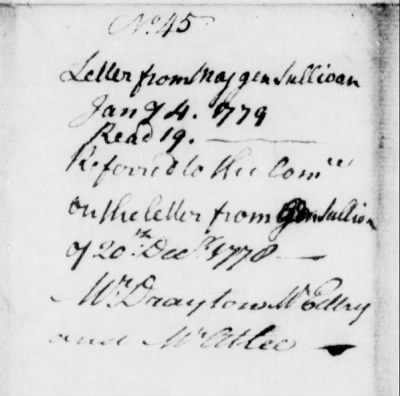 No. 45
Letter from Maj gen Sullivan
Jany 4. 1779
Read 19.
Referred to the Comee
on the letter from Gen Sullivan
of 20th Decr 1778
Mr Drayton Mr Ellery
and Mr Atlee